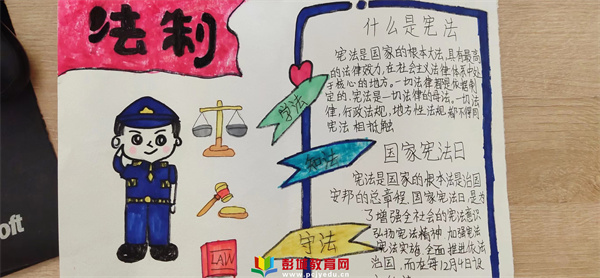 法制
什么是宪法
宪法是国家的根本大法,具有最高
的法律效力,在社会主义法律体系中处
于核心的地方。一切法律都是依据制
定的,宪法是一切法律的母法。一切法
律,行政法规,地方性法规都不得同
宪法相抵触
学法
知法
守法
国家宪法日
宪法是国家的根本法是治国
安邦的总章程,国家宪法日,是为
了增强全社会的宪法意识
弘扬宪法精神,加强宪法
宪法实施全面推进依法
治国,而在每12月4日设
LAW
oft
彭城教育网
www.pcjyedu.cn